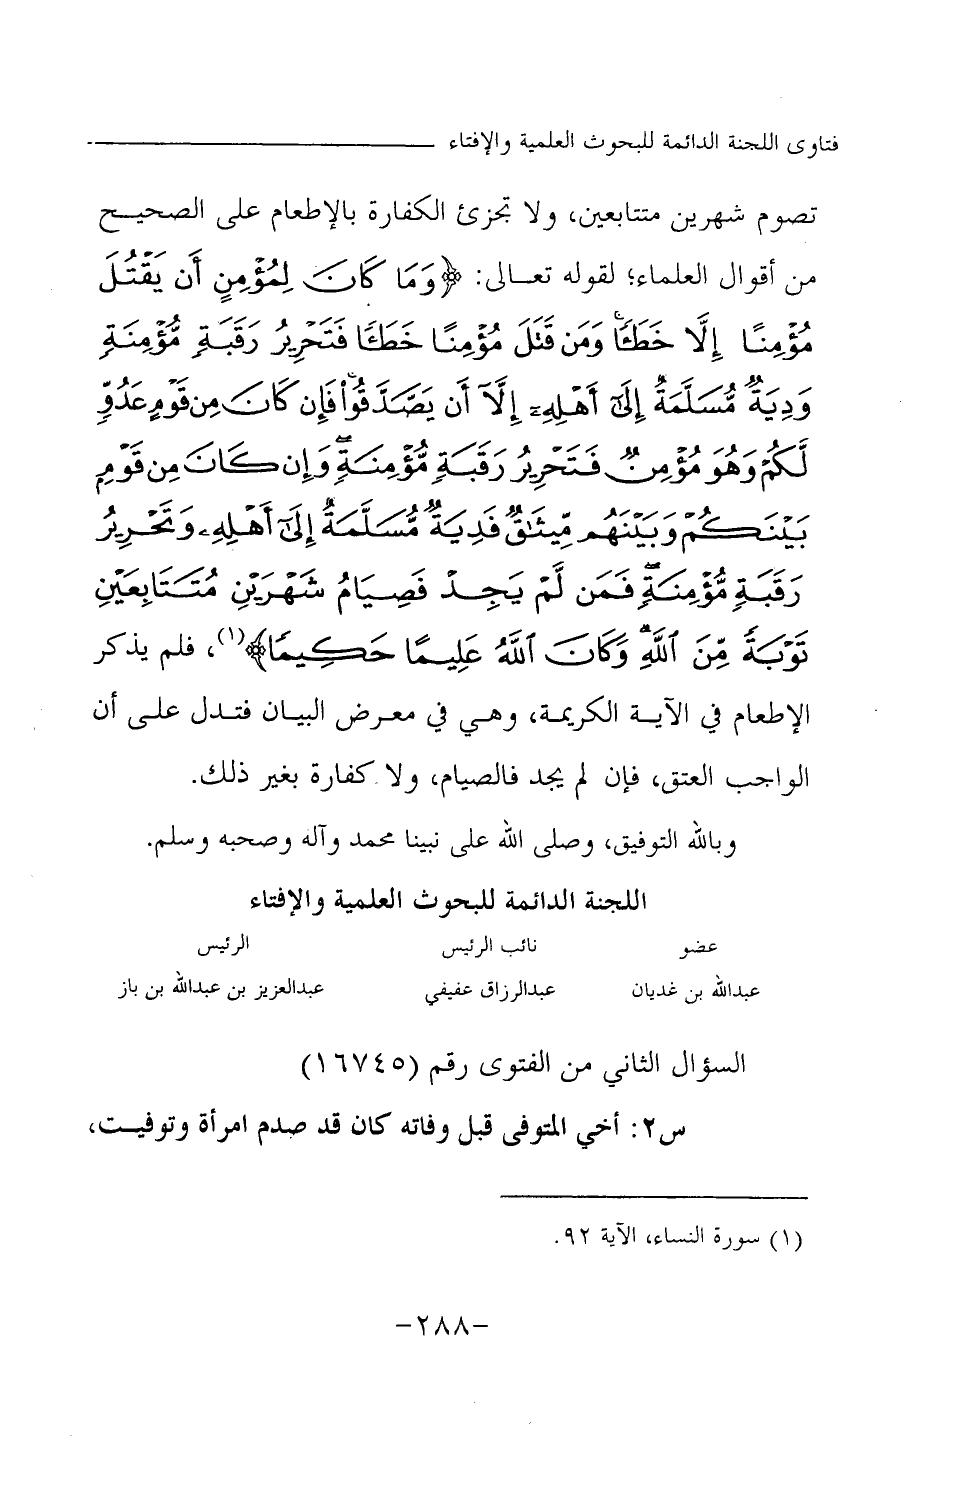 فتاوى اللجنة الدائمة للبحوث العلمية والإفتاء
تصوم شهرين متتابعين، ولا تجزئ الكفارة بالإطعام على الصحيح
من أقوال العلماء؛ لقوله تعالى: ﴿وَمَا كَانَ لِمُؤْمِنٍ أَن يَقْتُلَ
مُؤْمِنًا إِلَّا خَطَـًٔا وَمَن قَتَلَ مُؤْمِنًا خَطَـًٔا فَتَحْرِيرُ رَقَبَةٍ مُّؤْمِنَةٍ
وَدِيَةٌ مُّسَلَّمَةٌ إِلَىٰٓ أَهْلِهِۦٓ إِلَّآ أَن يَصَّدَّقُوا۟ فَإِن كَانَ مِن قَوْمٍ عَدُوٍّ
لَّكُمْ وَهُوَ مُؤْمِنٌ فَتَحْرِيرُ رَقَبَةٍ مُّؤْمِنَةٍ ۖ وَإِن كَانَ مِن قَوْمٍ
بَيْنَكُمْ وَبَيْنَهُم مِّيثَـٰقٌ فَدِيَةٌ مُّسَلَّمَةٌ إِلَىٰٓ أَهْلِهِۦ وَتَحْرِيرُ
رَقَبَةٍ مُّؤْمِنَةٍ ۖ فَمَن لَّمْ يَجِدْ فَصِيَامُ شَهْرَيْنِ مُتَتَابِعَيْنِ
تَوْبَةً مِّنَ ٱللَّهِ ۗ وَكَانَ ٱللَّهُ عَلِيمًا حَكِيمًا﴾(١)، فلم يذكر
الإطعام في الآية الكريمة، وهي في معرض البيان فتدل على أن
الواجب العتق، فإن لم يجد فالصيام، ولا كفارة بغير ذلك.
وبالله التوفيق، وصلى الله على نبينا محمد وآله وصحبه وسلم.
اللجنة الدائمة للبحوث العلمية والإفتاء
عضو نائب الرئيس الرئيس
عبدالله بن غديان عبدالرزاق عفيفي عبدالعزيز بن عبدالله بن باز
السؤال الثاني من الفتوى رقم (١٦٧٤٥)
س٢: أخي المتوفى قبل وفاته كان قد صدم امرأة وتوفيت،
(١) سورة النساء، الآية ٩٢.
-٢٨٨-